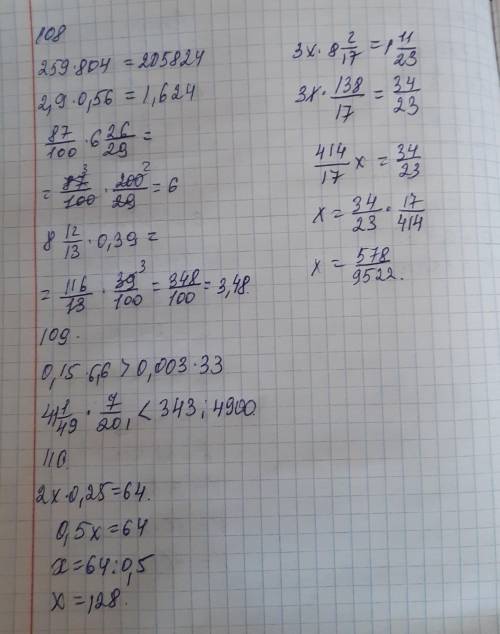 108
259·804 = 205824
2,9·0,56 = 1,624
87/100 · 6 26/29 =
= 87³/100 · 200²/29 = 6
8 12/13 · 0,39 =
= 116/13 · 39³/100 = 348/100 = 3,48.
109.
0,15·6,6 > 0,003·33
4 1/49 · 7/20, < 343:4900.
110.
2x·0,25=64.
0,5x=64
x=64:0,5
x=128.
3x·8 2/17 = 1 11/23
3x· 138/17 = 34/23
414/17 x = 34/23
x = 34/23 · 17/414
x = 578/9522.